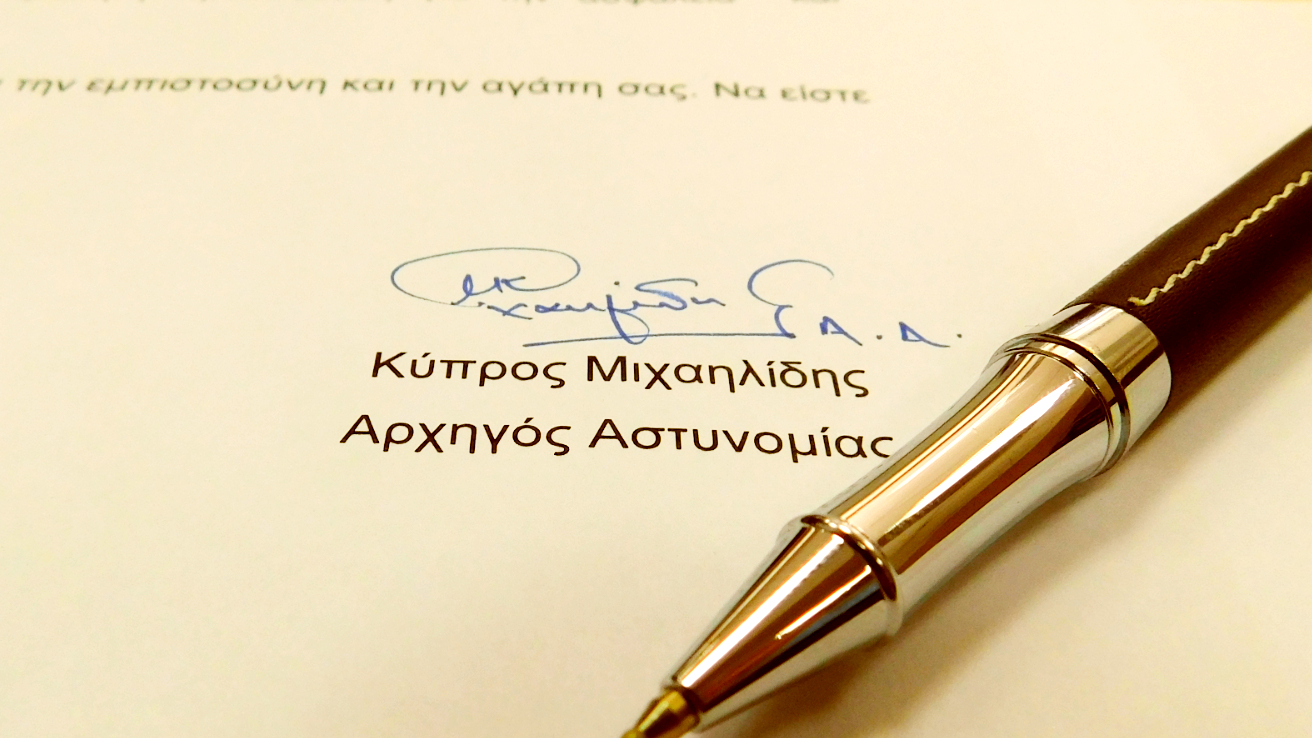 την ασφάλεια και
την εμπιστοσύνη και την αγάπη σας. Να είστε
Α.Α.
Κύπρος Μιχαηλίδης
Αρχηγός Αστυνομίας